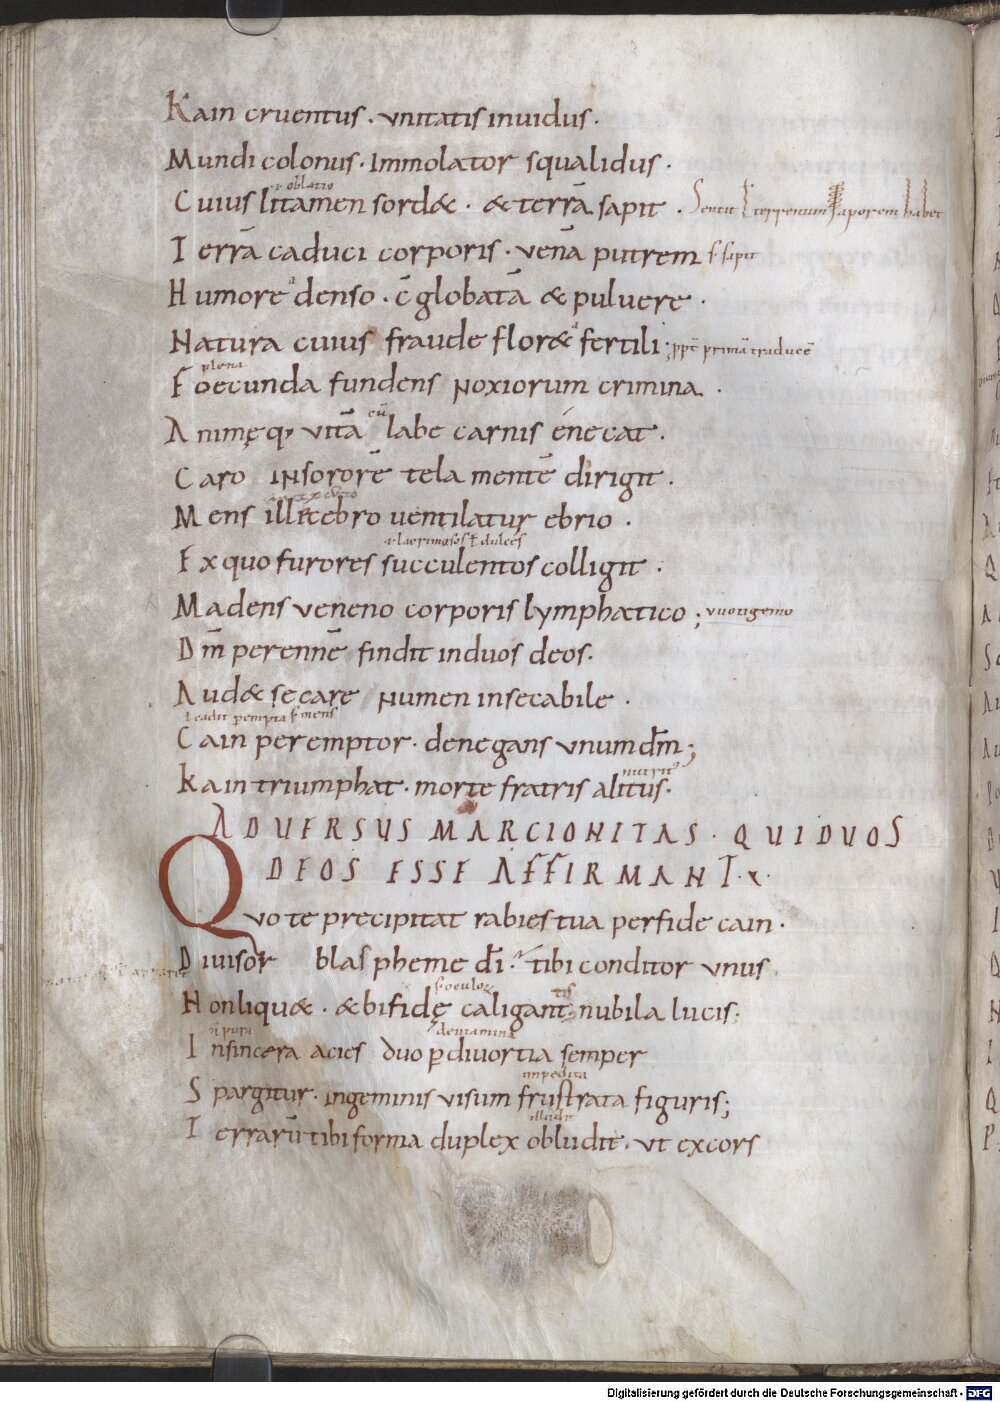 Kain cruentus . unitatis inuidus .
Mundi colonus . Immolator squalidus .
.i. oblatio
Cuius litamen sord& . & terrā sapit . Sentit ł terrenum saporem habet
Terrā caduci corporis . venā putrem s. sapit
Humore denso . c̄globatā & puluere .
Natura cuius fraude flor& fertili ; ppt̄ primā traducē
plena
Foecunda fundens noxiorum crimina .
Animęq; vitā cū labe carnis enecat .
Caro insororē tela mentē dirigit .
Mens illicebro uentilatur ebrio .
.i. lacrimosos ł dulces
Exquo furores succulentos colligit .
Madens veneno corporis lymphatico ;
Dm̄ perennē findit induos deos .
Aud& secare numen insecabile .
ł cadit perempta s. mens
Cain peremptor . denegans unum dm̄ ;
nutrit'
Kain triumphat . morte fratris alitus .
ADUERSUS MARCIONITAS . QUI DUOS
DEOS ESSE AFFIRMANT .
Quo te precipitat rabies tua perfide cain .
Diuisor blaspheme dī . tibi conditor unus
s. oculoꝝ tis
Nonliqu& . & bifidę caligant nubila lucis ;
n̄ puri
Insincera acies duo ꝑ diuortia semper
impedita
Spargitur . ingeminis visum frustrata figuris ;
illudit
Terrarū tibi forma duplex obludit . ut excors
Digitalisierung gefördert durch die Deutsche Forschungsgemeinschaft - DFG